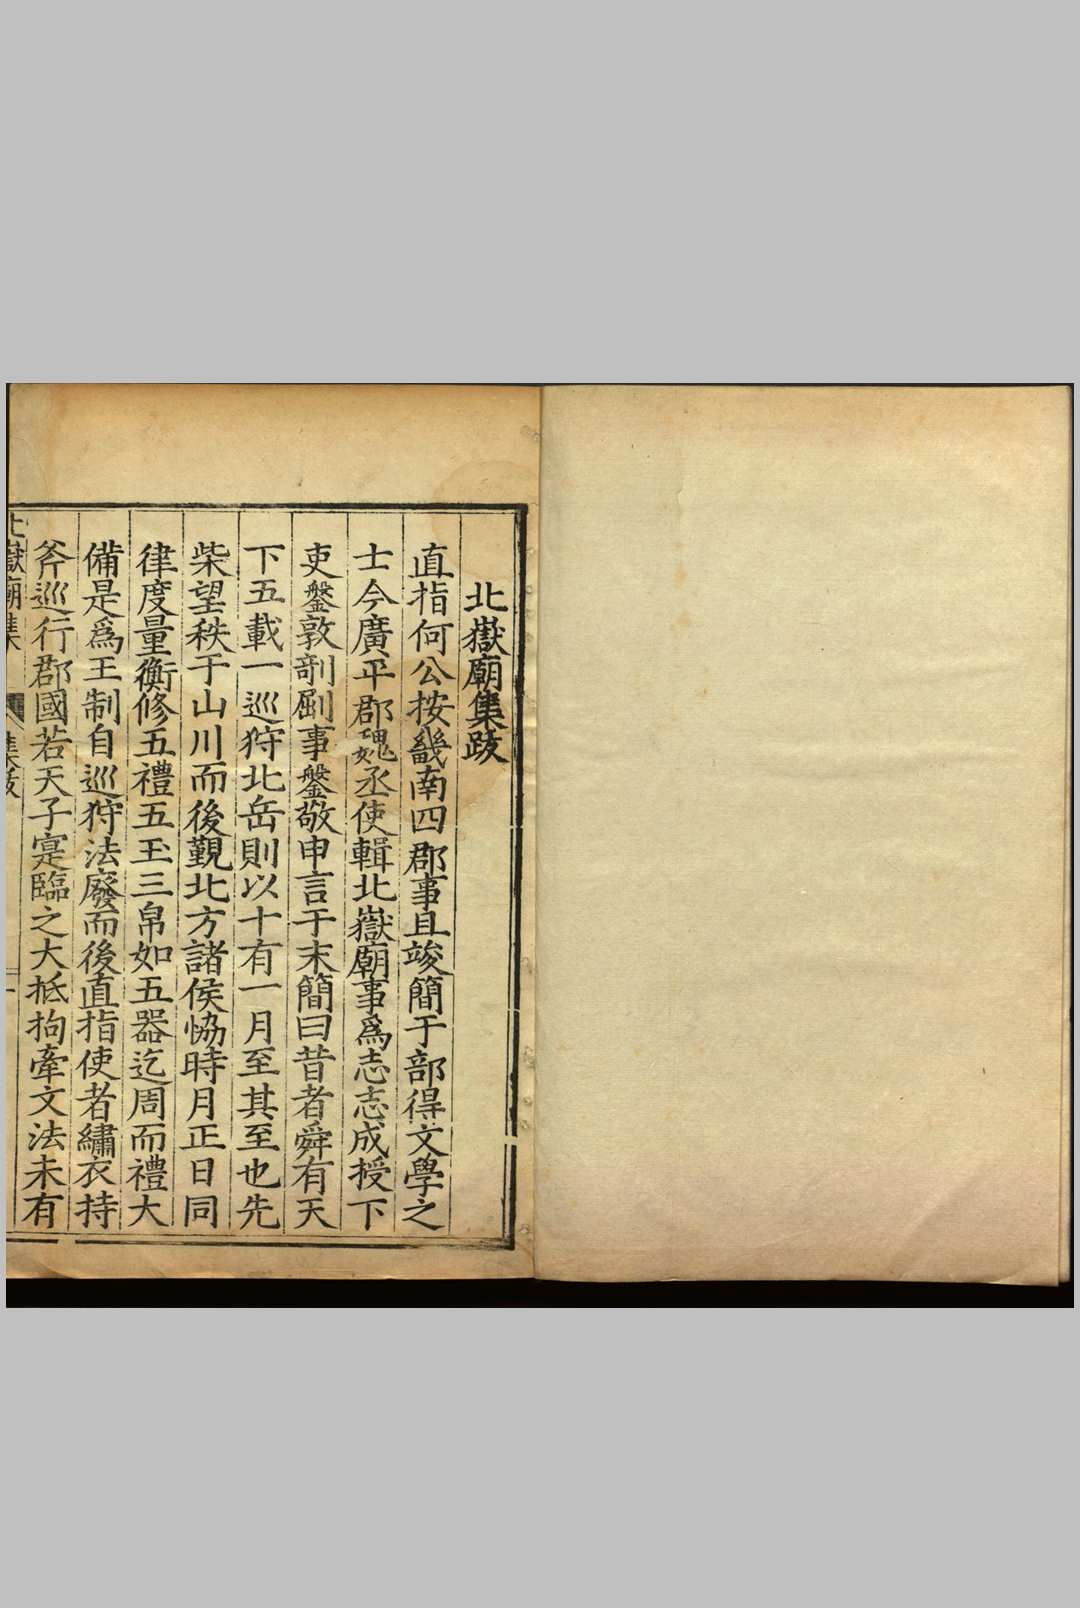 北嶽廟集跋
直指何公按畿南四郡事且竣簡于部得文學之
士今廣平郡魏丞使輯北嶽廟事爲志志成授下
吏鎜敦剞劂事鎜敬申言于末簡曰昔者舜有天
下五載一巡狩北岳則以十有一月至其至也先
柴望秩于山川而後覲北方諸侯恊時月正日同
律度量衡修五禮五玉三帛如五器迄周而禮大
備是爲王制自巡狩法廢而後直指使者繡衣持
斧巡行郡國若天子寔臨之大抵拘牽文法未有
北嶽廟集 集跋 一